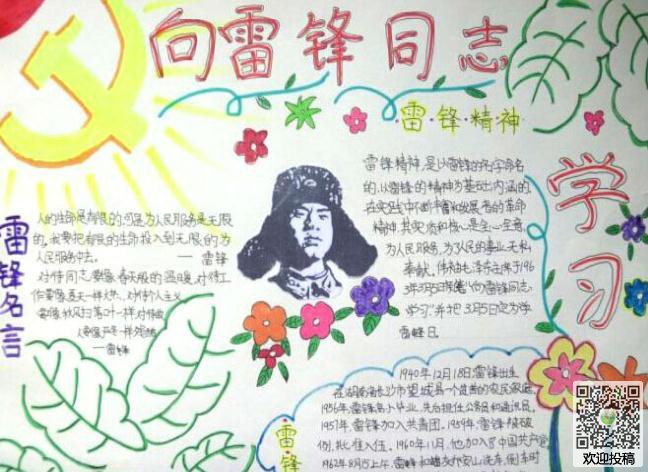 向雷锋同志
学习
·雷·锋·精神·
雷锋精神,是以雷锋的名字命名
的,以雷锋的精神为基本内涵的,
在实践中不断丰富和发展着的革命
精神,其实质和核心是全心全意
为人民服务,为了人民的事业无私
奉献。毛泽东于196
3年3月5日“向雷锋同志
学习”并把3月5日定为学
雷锋日。
雷锋名言
人的生命是有限的,可是为人民服务是无限
的,我要把有限的生命投入到无限的为
人民服务中去。 — 雷锋
对待同志要像春天般的温暖,对待工
作要像夏天一样火热,对待个人主义
要像秋风扫落叶一样,对待敌
人要像严冬一样残酷
—雷锋
雷锋
1940年12月18日,雷锋出生
在湖南省长沙市望城县一个贫苦的农民家庭,
1956年,雷锋高小毕业,先后担任公务员和通讯员,
1957年,雷锋加入共青团。1959年,雷锋被破
例批准入伍。1960年11月,他加入了中国共产党
1962年8月15日上午,雷锋和战友
欢迎投稿